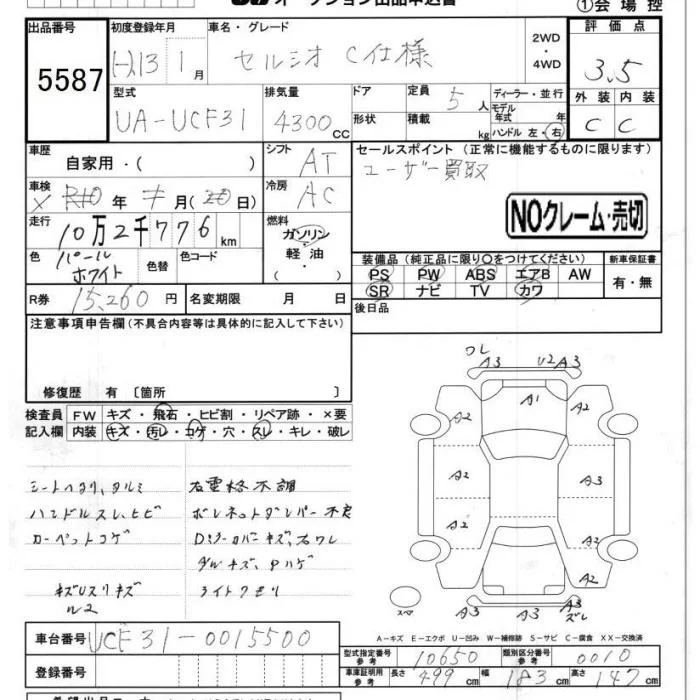 オークション出品申込書 ①会場控
出品番号 初度登録年月 車名・グレード 評価点
5587 H13年 1月 セルシオ C仕様 2WD・4WD 3.5
型式 排気量 ドア 定員 ディーラー・並行 外装 内装
UA-UCF31 4300CC 5人 モデル年式 年式 C C
形状 積載 kg ハンドル 左・右
車歴 自家用・( ) シフト AT セールスポイント (正常に機能するものに限ります)
ユーザー買取
車検 年 月( 日) 冷房 AC
NOクレーム・売切
走行 10万2千776km 燃料 ガソリン・軽油・( )
色 パールホワイト 色替 色コード
装備品 (純正品に限り○をつけてください) 新車保証書
PS PW ABS エアB AW 有・無
SR ナビ TV カワ
R券 15,260円 名変期限 月 日 後日品
注意事項申告欄 (不具合内容等は具体的に記入して下さい)
修復歴 有 〔箇所 〕
検査員 FW キズ・飛石・ヒビ割・リペア跡・×要
記入欄 内装 キズ・汚レ・コゲ・穴・スレ・キレ・破レ
シートヘタリ、タルミ
ハンドルスレ、ヒビ ボンネットダンパー不良
カーペットコゲ Dミラーカバーキズ、左ワレ
ライトクモリ
ワレ A3 U2 A3
A1
A2 A2
A2 A3
A2 A2
A2
スペア A3 A3 A3 ズレ
A-キズ E-エクボ U-凹み W-補修跡 S-サビ C-腐食 XX-交換済
車台番号 UCF31-0015500
登録番号
型式指定番号 参考 10650 類別区分番号 参考 0010
車庫証明用 参考 長さ 499cm 幅 183cm 高さ 147cm